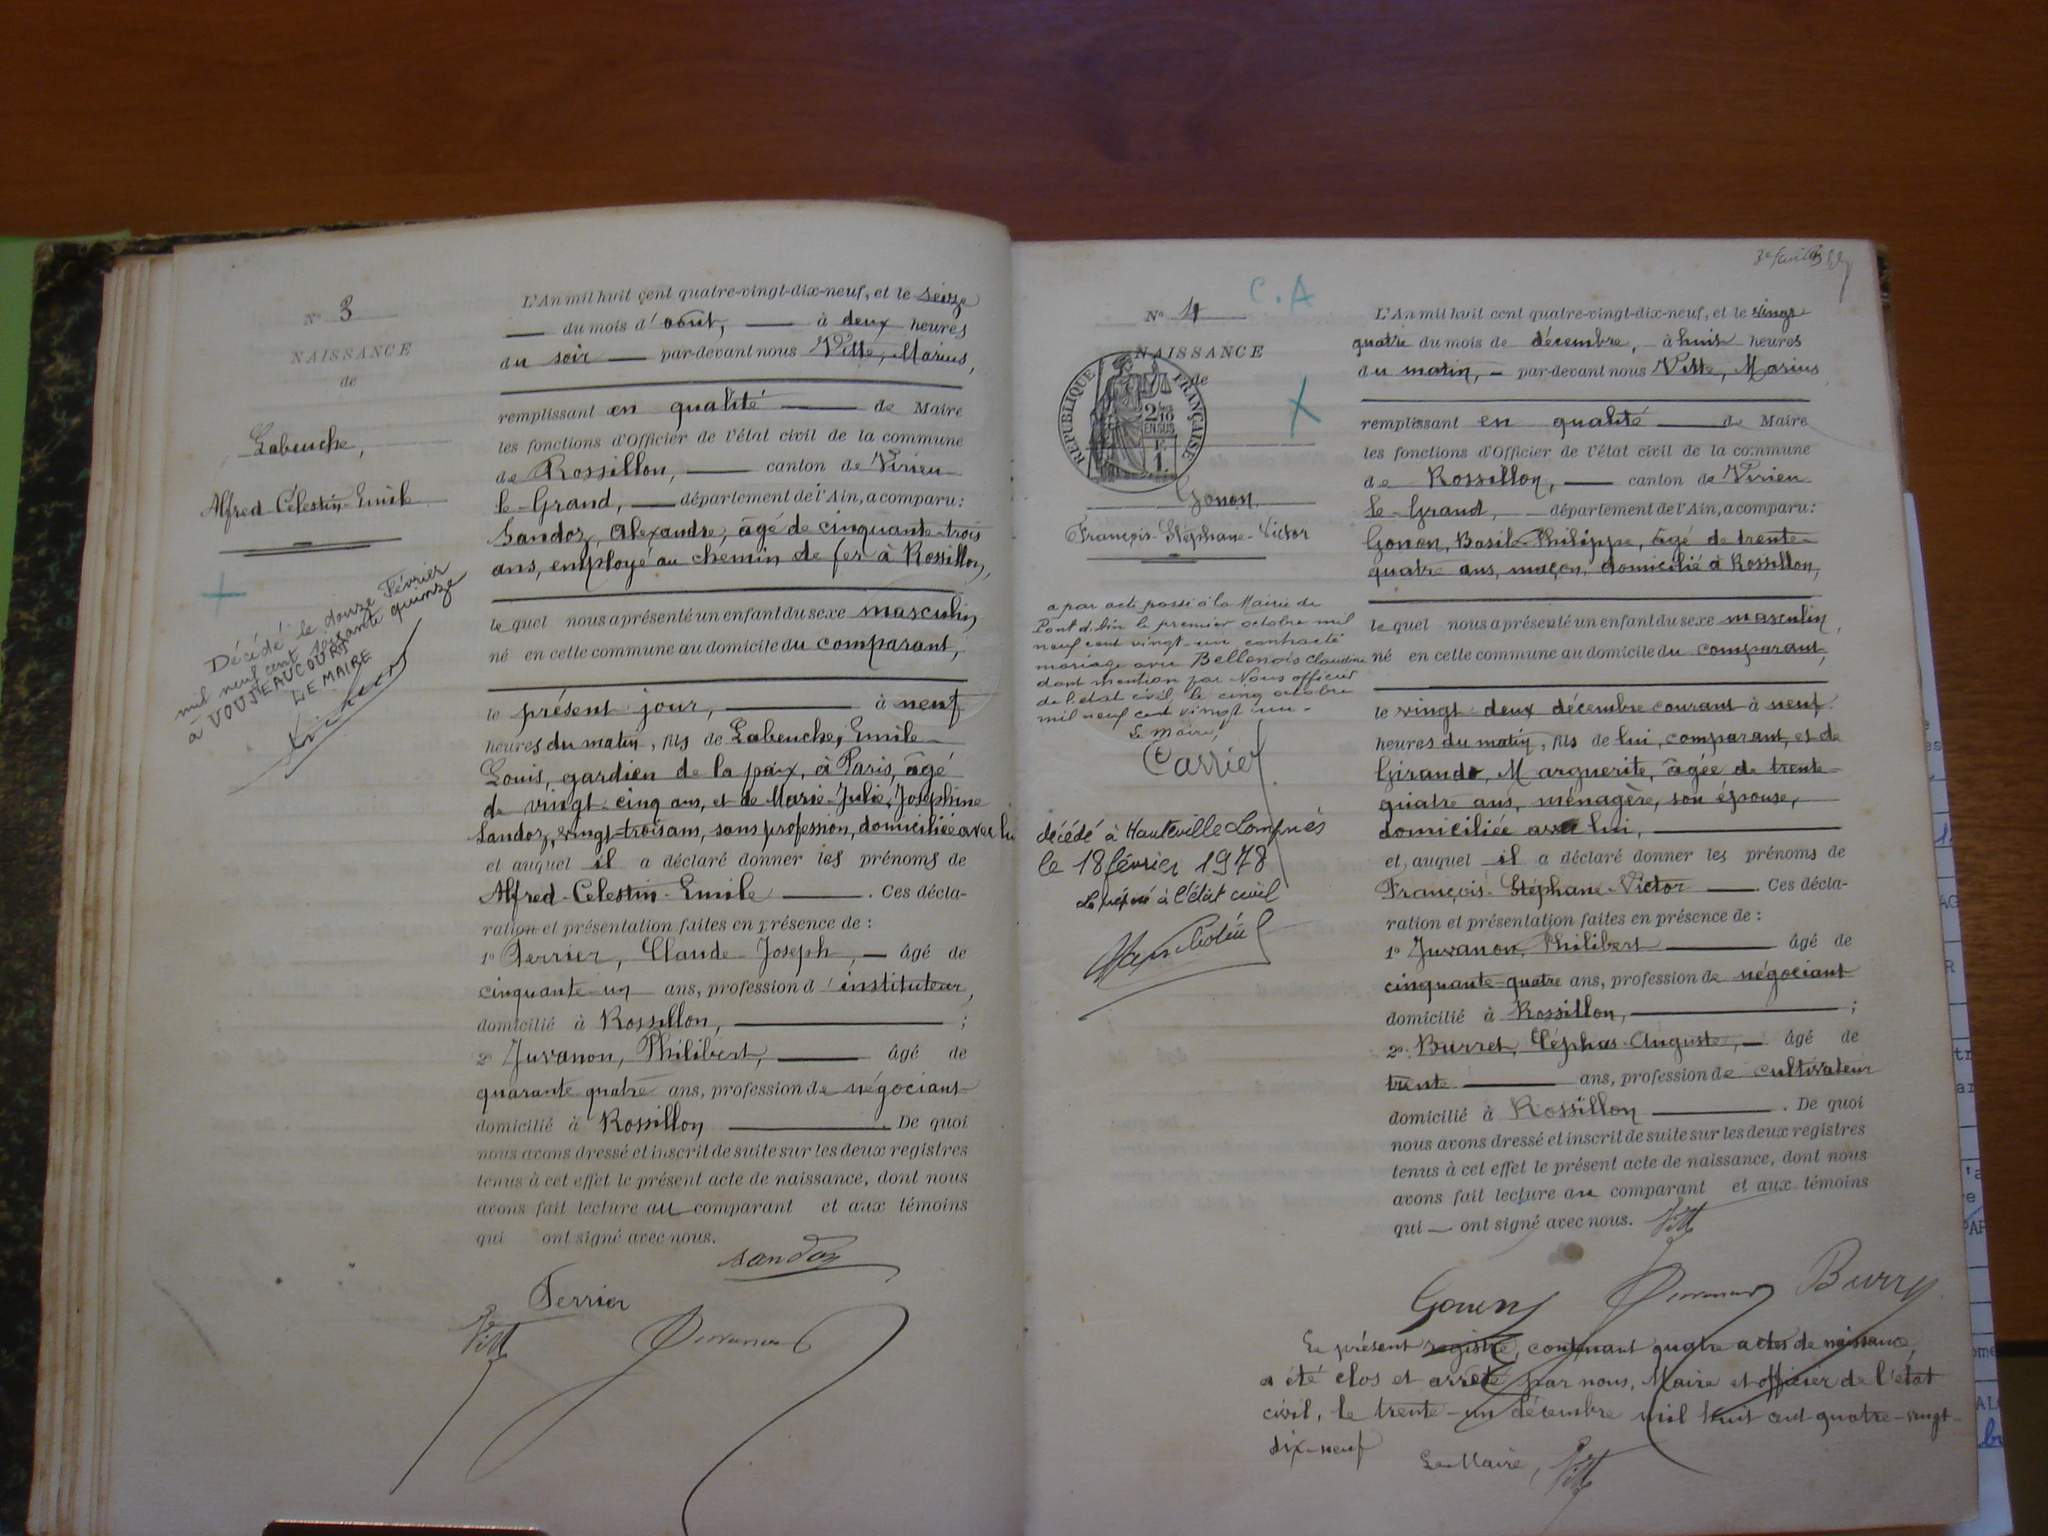 N° 3
NAISSANCE
de
Labeuche,
Alfred-Célestin-Emile
Décédé le douze Février
mil neuf cent soixante quinze
à VOUJEAUCOURT
LE MAIRE
L'An mil huit cent quatre-vingt-dix-neuf, et le seize
du mois d'août, à deux heures
du soir par-devant nous Vitte, Marius,
remplissant en qualité de Maire
les fonctions d'Officier de l'état civil de la commune
de Rossillon, canton de Virieu
le-Grand, département de l'Ain, a comparu:
Sandoz, Alexandre, âgé de cinquante-trois
ans, employé au chemin de fer à Rossillon,
le quel nous a présenté un enfant du sexe masculin
né en cette commune au domicile du comparant,
le présent jour, à neuf
heures du matin, fils de Labeuche, Emile
Louis, gardien de la paix, à Paris, âgé
de vingt-cinq ans, et de Marie-Julie, Joséphine
Sandoz, vingt-trois ans, sans profession, domiciliée avec lui
et auquel il a déclaré donner les prénoms de
Alfred-Celestin-Emile. Ces décla-
ration et présentation faites en présence de :
1° Perrier, Claude Joseph, âgé de
cinquante-un ans, profession d'instituteur,
domicilié à Rossillon, ;
2° Juvanon, Philibert, âgé de
quarante quatre ans, profession de négociant
domicilié à Rossillon. De quoi
nous avons dressé et inscrit de suite sur les deux registres
tenus à cet effet le présent acte de naissance, dont nous
avons fait lecture au comparant et aux témoins
qui ont signé avec nous.
Sandoz
Perrier
Vitte
Juvanon
N° 4
C.A
NAISSANCE
de
RÉPUBLIQUE FRANÇAISE
2/10
EN SUS
F.
1.
Gonon
François-Stéphane-Victor
a par acte passé à la Mairie de
Pont d'Ain le premier octobre mil
neuf cent vingt-un contracté
mariage avec Bellenois Claudine
dont mention par Nous officier
de l'état civil, le cinq octobre
mil neuf cent vingt un.
Le Maire,
Carrier
décédé à Hauteville Lompnès
le 18 février 1978
à l'état civil
L'An mil huit cent quatre-vingt-dix-neuf, et le vingt
quatre du mois de décembre, à huit heures
du matin, par-devant nous Vitte, Marius
remplissant en qualité de Maire
les fonctions d'Officier de l'état civil de la commune
de Rossillon, canton de Virieu
le-Grand, département de l'Ain, a comparu:
Gonon, Basile-Philippe, âgé de trente-
quatre ans, maçon, domicilié à Rossillon,
le quel nous a présenté un enfant du sexe masculin,
né en cette commune au domicile du comparant,
le vingt-deux décembre courant à neuf
heures du matin, fils de lui, comparant, et de
Girando, Marguerite, âgée de trente-
quatre ans, ménagère, son épouse,
domiciliée avec lui,
et auquel il a déclaré donner les prénoms de
François-Stéphane-Victor. Ces décla-
ration et présentation faites en présence de :
1° Juvanon, Philibert âgé de
cinquante-quatre ans, profession de négociant
domicilié à Rossillon, ;
2° Burret, Céphas-Auguste, âgé de
trente ans, profession de cultivateur
domicilié à Rossillon. De quoi
nous avons dressé et inscrit de suite sur les deux registres
tenus à cet effet le présent acte de naissance, dont nous
avons fait lecture au comparant et aux témoins
qui ont signé avec nous. Vitte
Gonon Juvanon Burret
Le présent registre, contenant quatre actes de naissance,
a été clos et arrêté par nous, Maire et officier de l'état
civil, le trente-un décembre mil huit cent quatre-vingt-
dix-neuf
Le Maire, Vitte